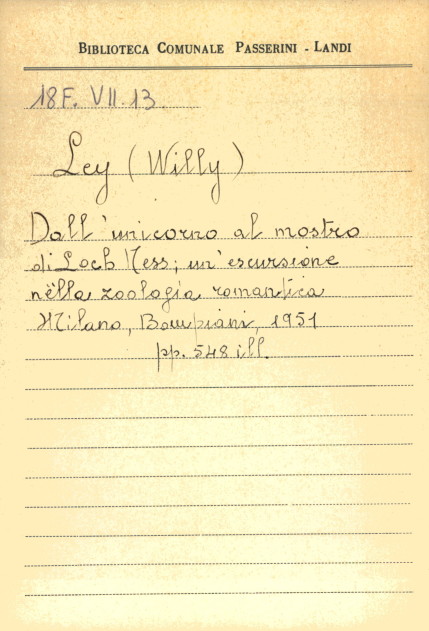 BIBLIOTECA COMUNALE PASSERINI - LANDI
18F. VII. 13.
Ley (Willy)
Dall'unicorno al mostro
di Loch Ness; un'escursione
nella zoologia romantica
Milano, Bompiani, 1951
pp. 548 ill.